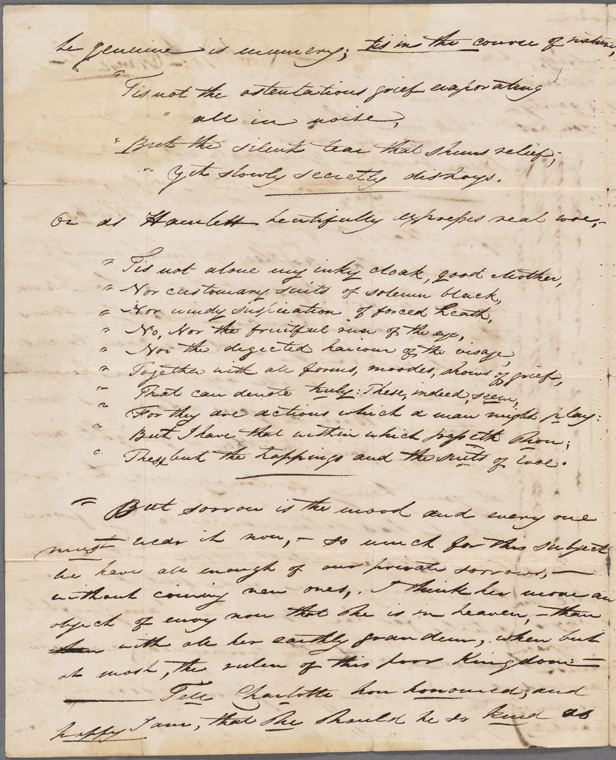 be genuine is mummery; tis in the course of nature,
"Tis not the ostentatious grief evaporating
" all in noise,
" But the silent tear that shuns relief,
" Yet slowly secretly distroys.
Or as Hamlett beutifully expresses real woe,-
" Tis not alone my inky cloak, good Mother,
" Nor customary suits of solemn black,
" Nor windy suspiration of forced breath,
" No, Nor the fruitful river of the eye,
" Nor the degected haviour of the visage,
" Together with all forms, moodes, shows of grief,
" That can denote truly: These, indeed, seem,
" For they are actions which a man might play:
" But I have that within which passeth Show;
" These, but the trappings and the suits of woe.
" But sorrow is the mood and every one
must wear it now, - so much for this subject
we have all enough of our private sorrows, -
without coining new ones, I think her more an
object of envy now that She is in heaven, than
with all her earthly grandeur, when but
at most, the ruler of this poor Kingdom: -
Tell Charlotte how honoured, and
happy I am, that She should be so kind as